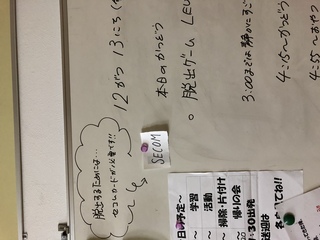 12がつ 13にち
本日のかつどう
○ 脱出ゲーム
3:00までは静かにすご
4:15〜かつどう
4:55〜おやつ
脱出するためには…
セコムカードが必要です!!
SECOM
日の予定〜
〜 学習
〜 活動
〜 掃除・片付け
〜 帰りの会
30出発
送迎は